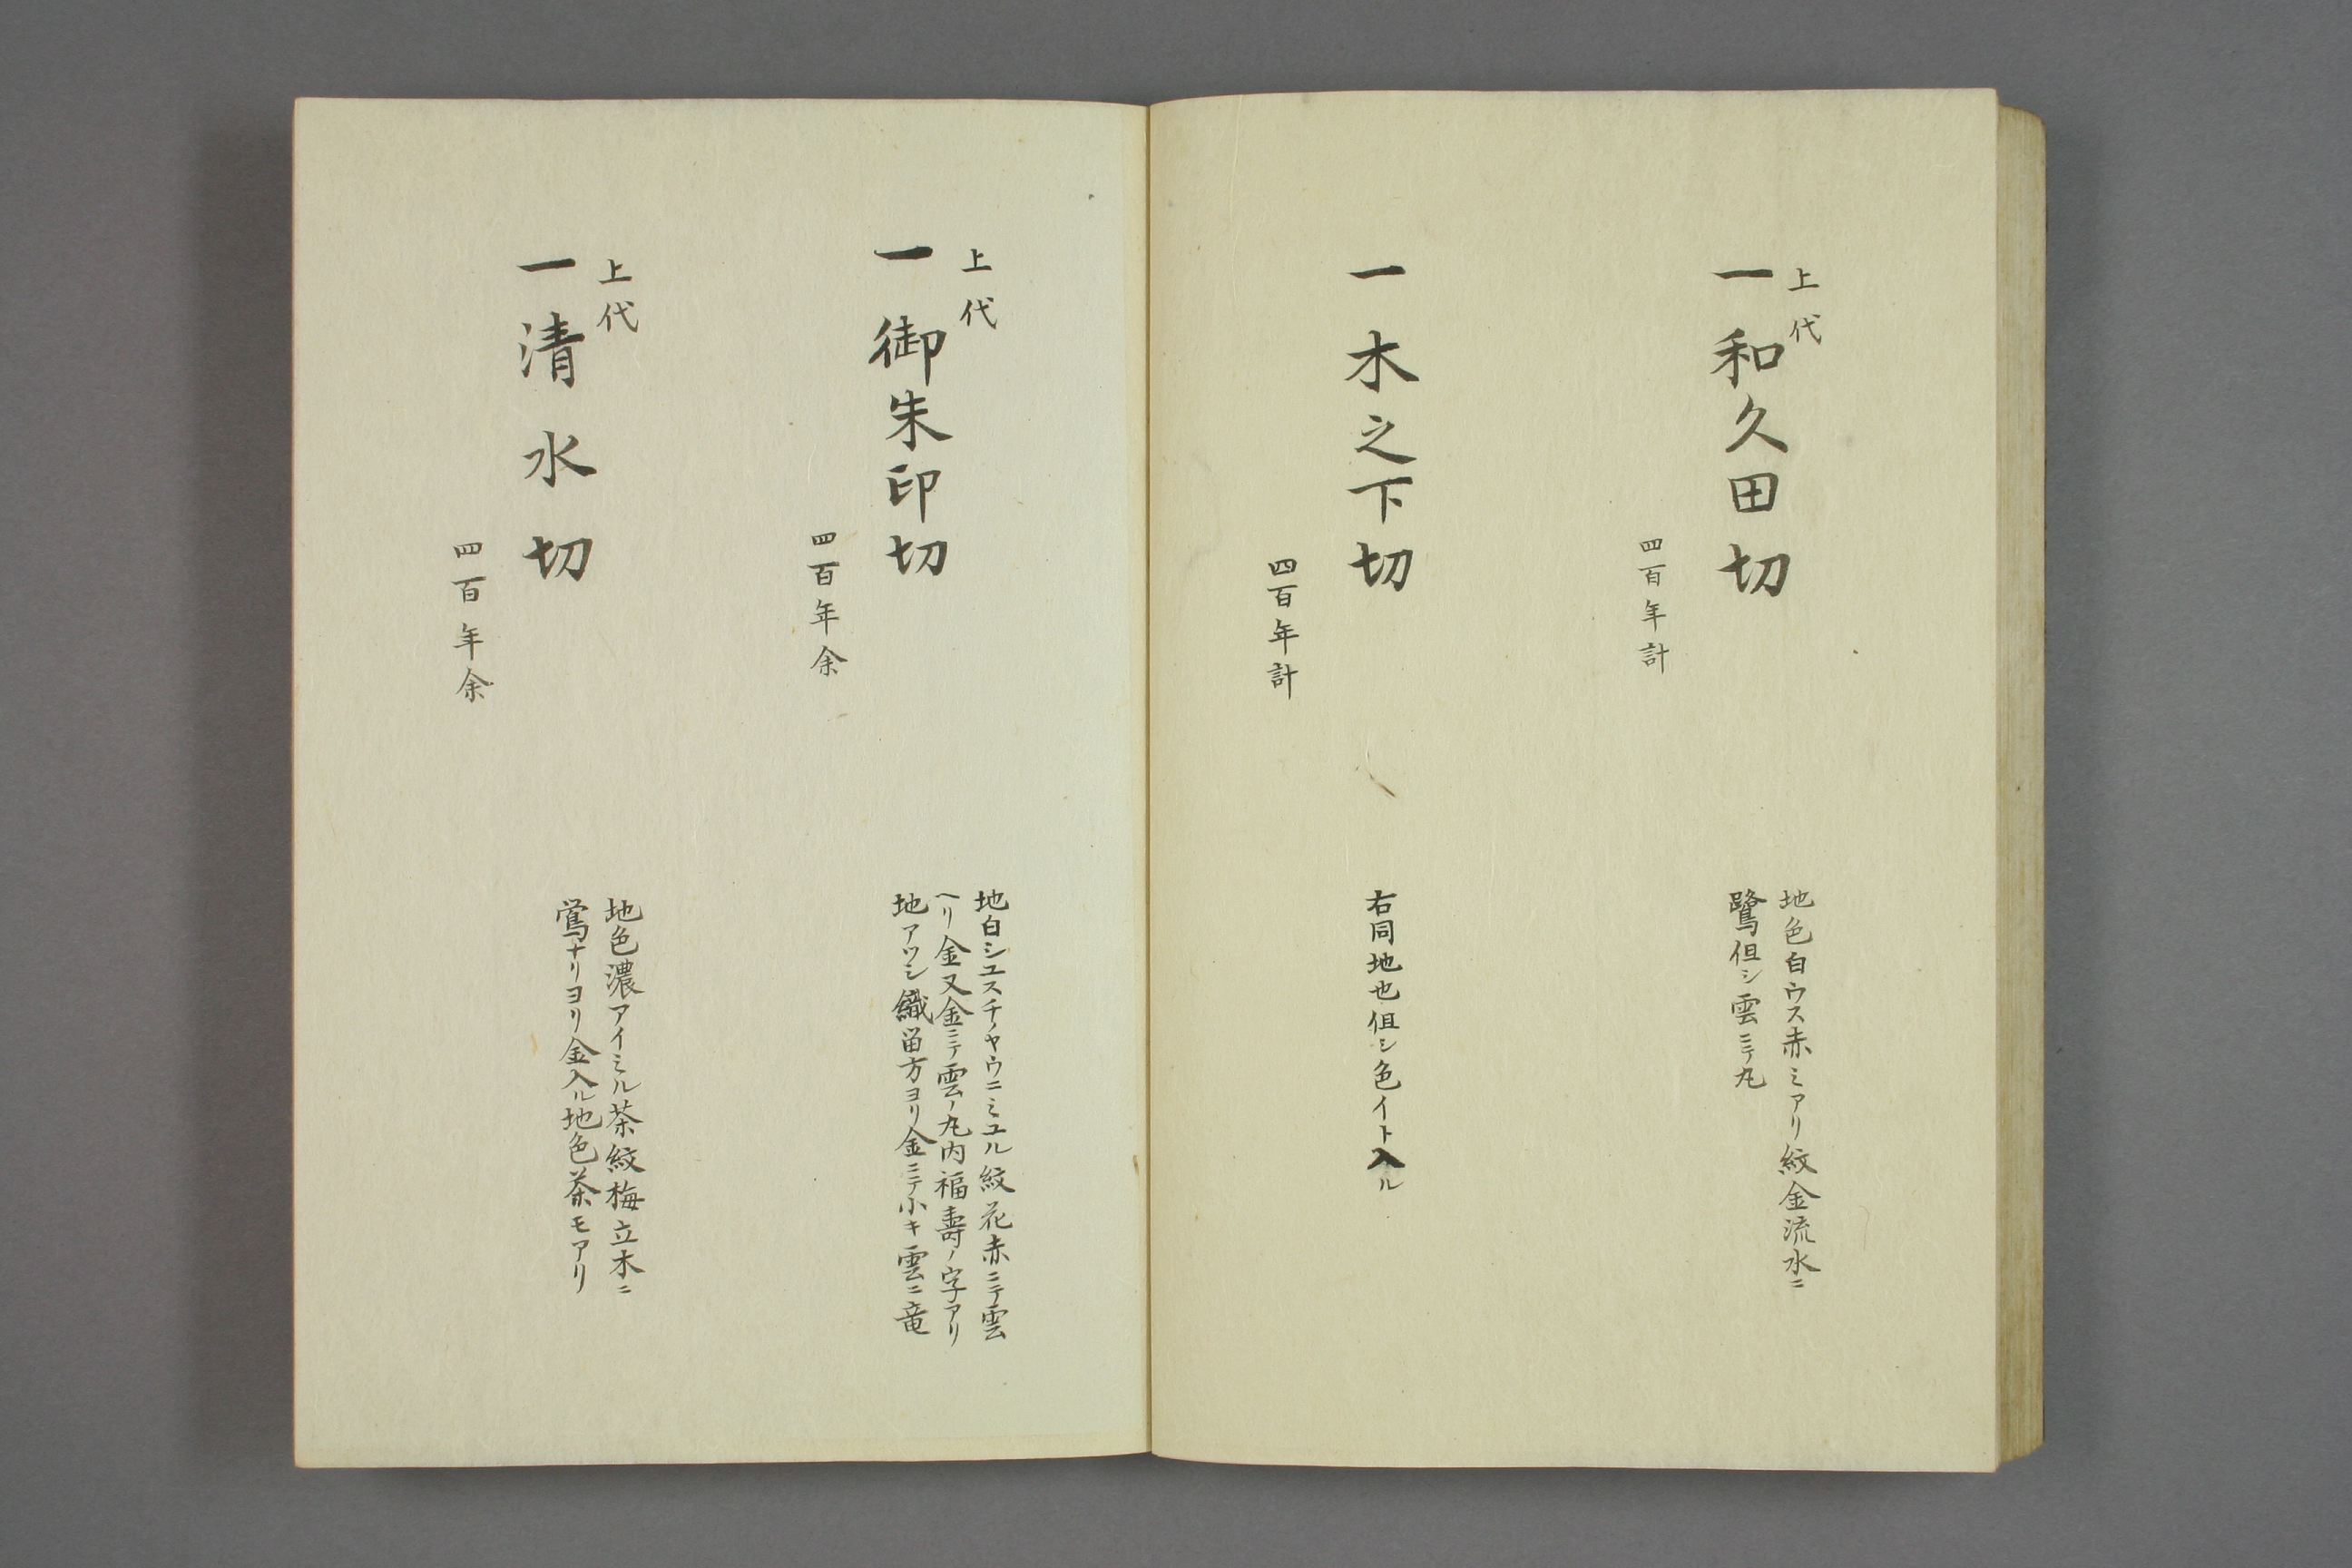 上代
一和久田切
四百年計
地色白ウス赤ミアリ紋金流水ニ
鷺但シ雲ニテ丸
一木之下切
四百年計
右同地也但シ色イト入ル
上代
一御朱印切
四百年余
地白シユスチノヤウニミユル紋花赤ニテ雲
ヘリ金又金ニテ雲ノ丸内福壽ノ字アリ
地アツシ織留方ヨリ金ニテ小キ雲ニ竜
上代
一清水切
四百年余
地色濃アイミル茶紋梅立木ニ
鶯ナリヨリ金入ル地色茶モアリ